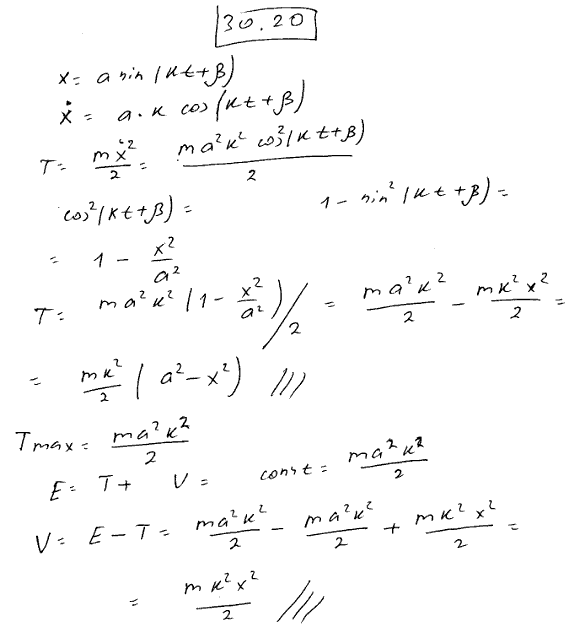 30.20
x = a sin(kt+β)
ẋ = a·k cos(kt+β)
T = mẋ²/2 = ma²k² cos²(kt+β)/2
cos²(kt+β) = 1 − sin²(kt+β) =
= 1 − x²/a²
T = ma²k²(1 − x²/a²)/2 = ma²k²/2 − mk²x²/2 =
= mk²/2 (a² − x²) ///
Tmax = ma²k²/2
E = T + V = const = ma²k²/2
V = E − T = ma²k²/2 − ma²k²/2 + mk²x²/2 =
= mk²x²/2 ///